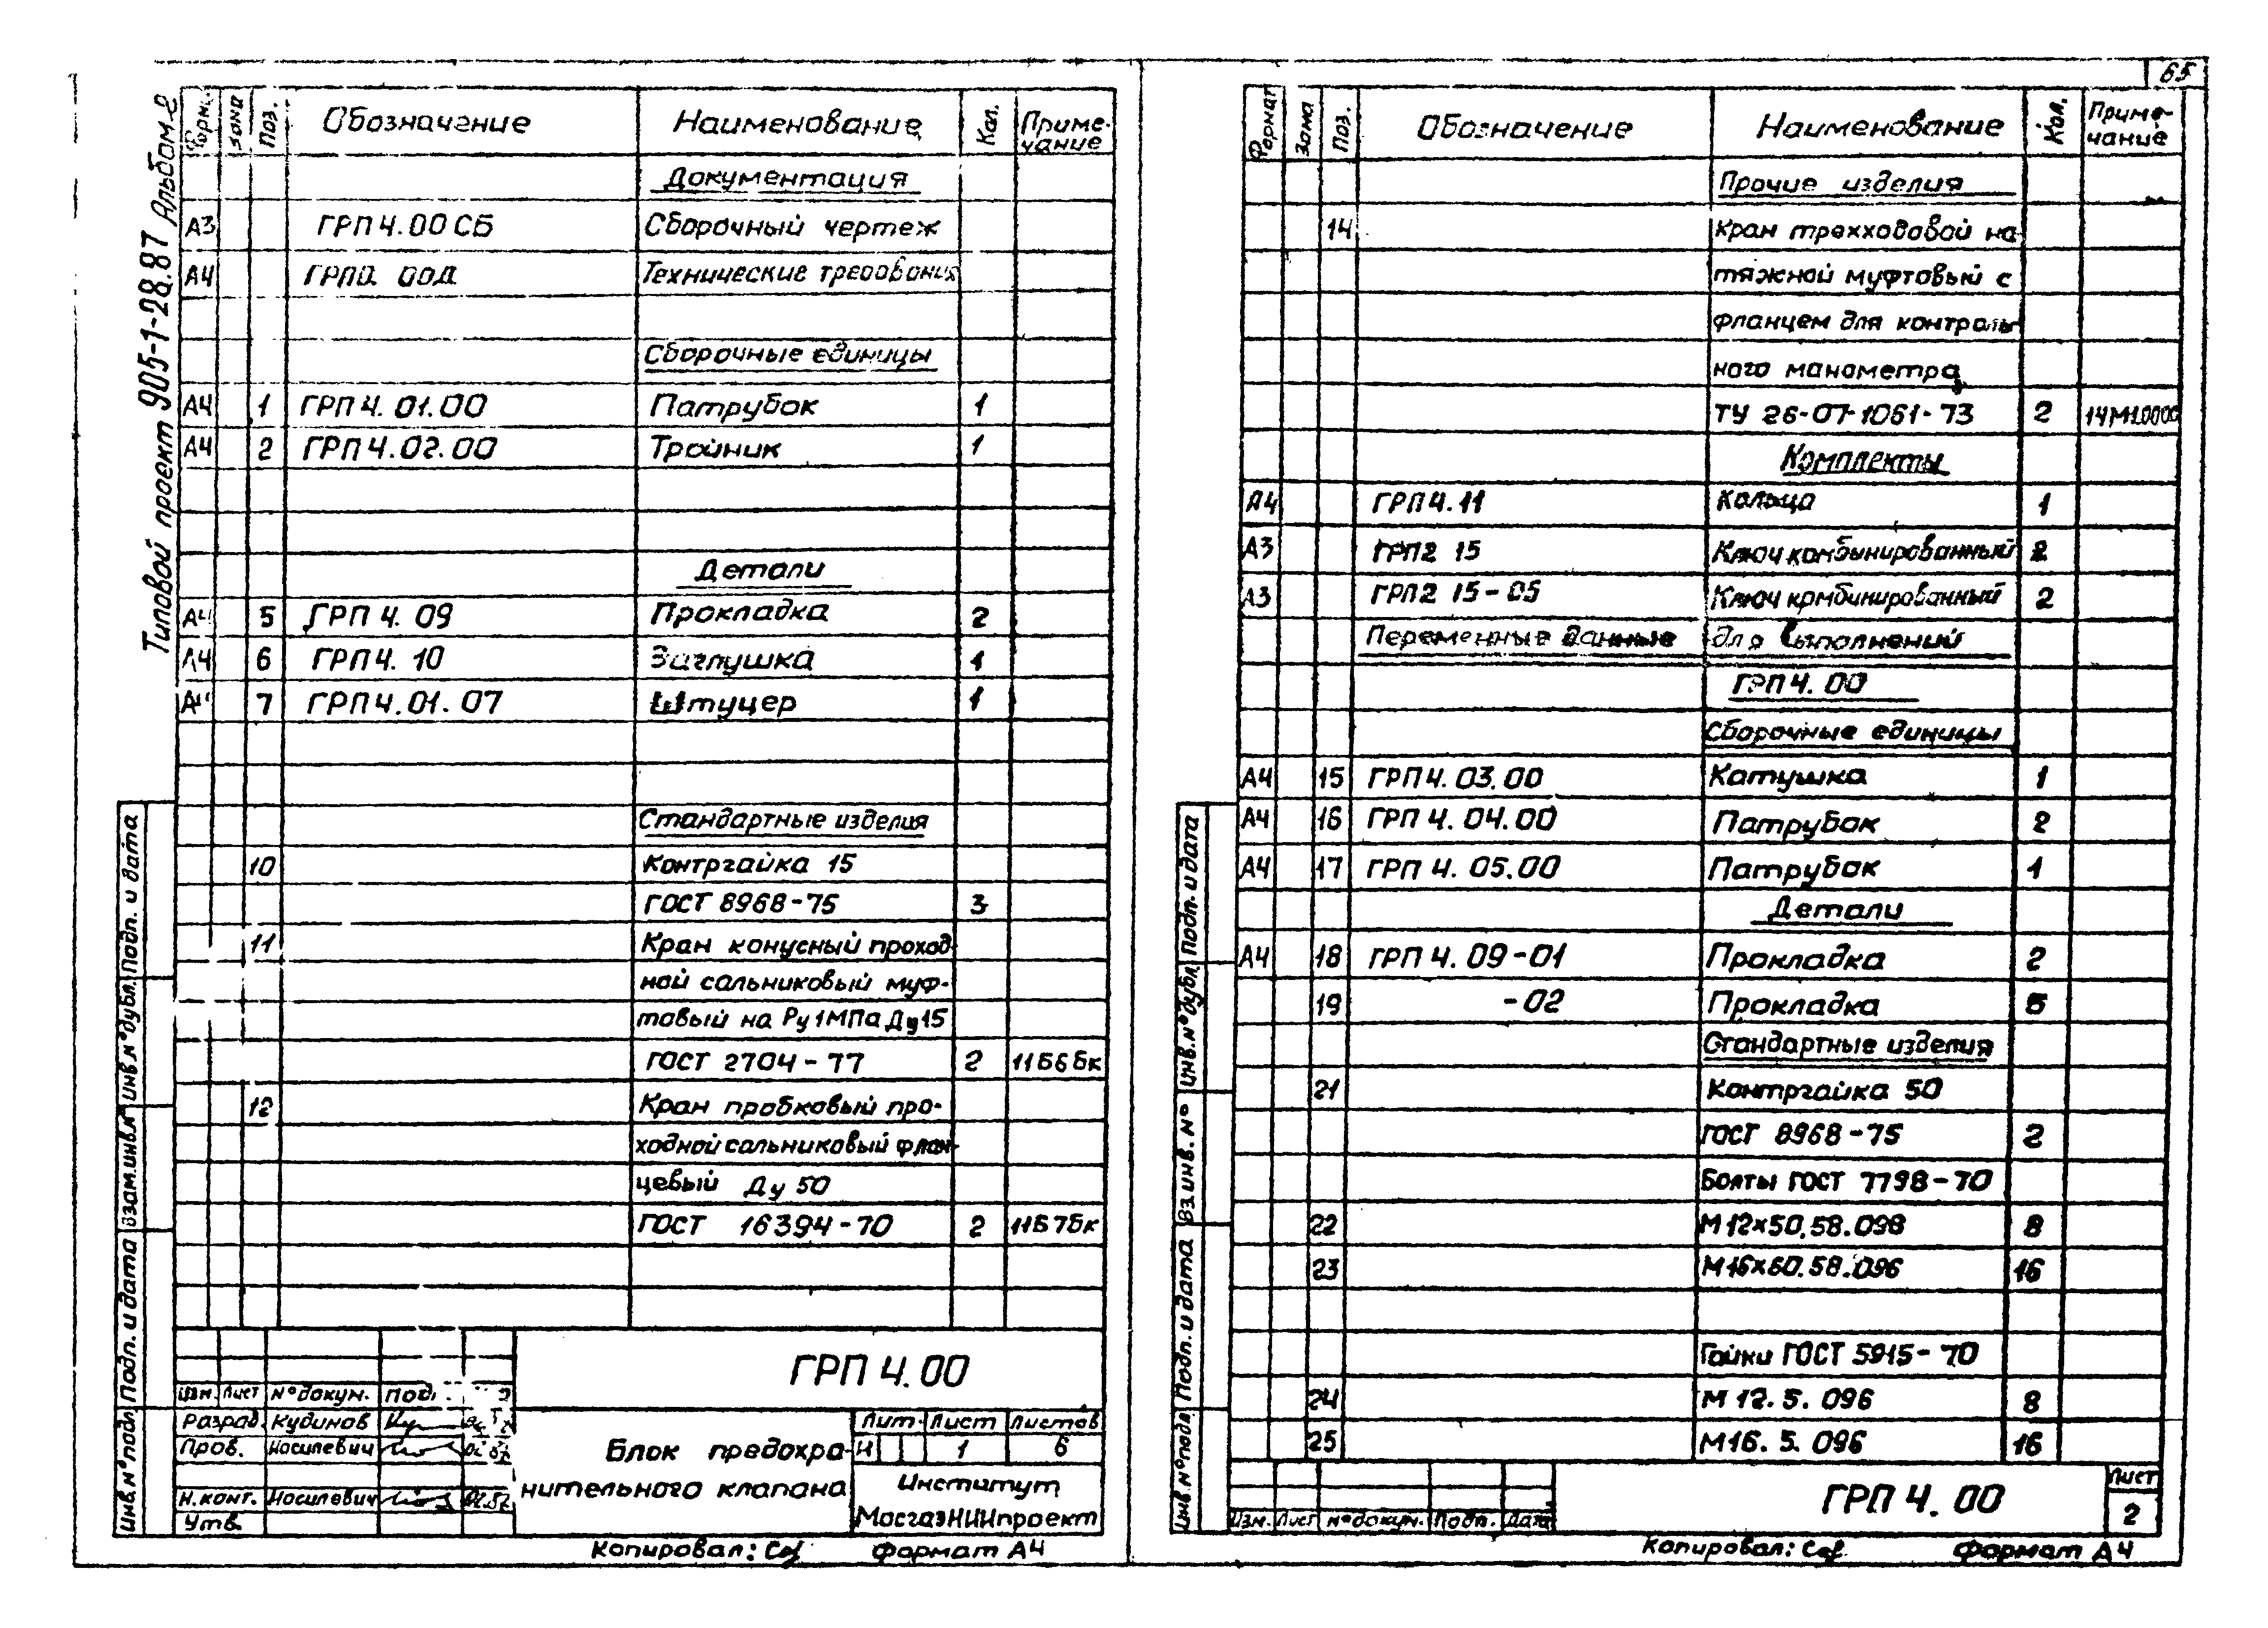 65
Типовой проект 905-1-28.87 Альбом 2
Форм. Зона Поз. Обозначение Наименование Кол. Приме-
чание
Документация
А3 ГРП 4.00 СБ Сборочный чертеж
А4 Технические требования
Сборочные единицы
А4 1 ГРП 4.01.00 Патрубок 1
А4 2 ГРП 4.02.00 Тройник 1
Детали
А4 5 ГРП 4.09 Прокладка 2
А4 6 ГРП 4.10 Заглушка 1
А4 7 ГРП 4.01.07 Штуцер 1
Стандартные изделия
10 Контргайка 15
ГОСТ 8968-75 3
11 Кран конусный проход-
ной сальниковый муф-
товый на Ру 1МПа Ду15
ГОСТ 2704-77 2 11Б6бк
12 Кран пробковый про-
ходной сальниковый флан-
цевый Ду 50
ГОСТ 16394-70 2 11Б7бк
Инв.№подл. Подп. и дата Взам.инв.№ Инв.№дубл. Подп. и дата
ГРП 4.00
Изм. Лист №докум. Подп.
Разраб. Кудинов
Пров. Носилевич
Н.конт. Носилевич
Утв.
Блок предохра-
нительного клапана
Лит. Лист Листов
И 1 6
Институт
МосгазНИИпроект
Копировал: Формат А4
Формат Зона Поз. Обозначение Наименование Кол. Приме-
чание
Прочие изделия
14 Кран трехходовой на-
тяжной муфтовый с
фланцем для контроль-
ного манометра
ТУ 26-07-1061-73 2
Комплекты
А4 ГРП 4.11 Кольца 1
А3 ГРП2 15 Ключ комбинированный 2
А3 ГРП2 15-05 Ключ комбинированный 2
Переменные данные для выполнений
ГРП 4.00
Сборочные единицы
А4 15 ГРП 4.03.00 Катушка 1
А4 16 ГРП 4.04.00 Патрубок 2
А4 17 ГРП 4.05.00 Патрубок 1
Детали
А4 18 ГРП 4.09-01 Прокладка 2
19 -02 Прокладка 5
Стандартные изделия
21 Контргайка 50
ГОСТ 8968-75 2
Болты ГОСТ 7798-70
22 М12×50.58.096 8
23 М16×60.58.096 16
Гайки ГОСТ 5915-70
24 М12.5.096 8
25 М16.5.096 16
Инв.№подл Подп. и дата Вз.инв.№ Инв.№дубл. Подп. и дата
Изм. Лист №докум. Подп. Дата
ГРП 4.00
Лист
2
Копировал: Формат А4